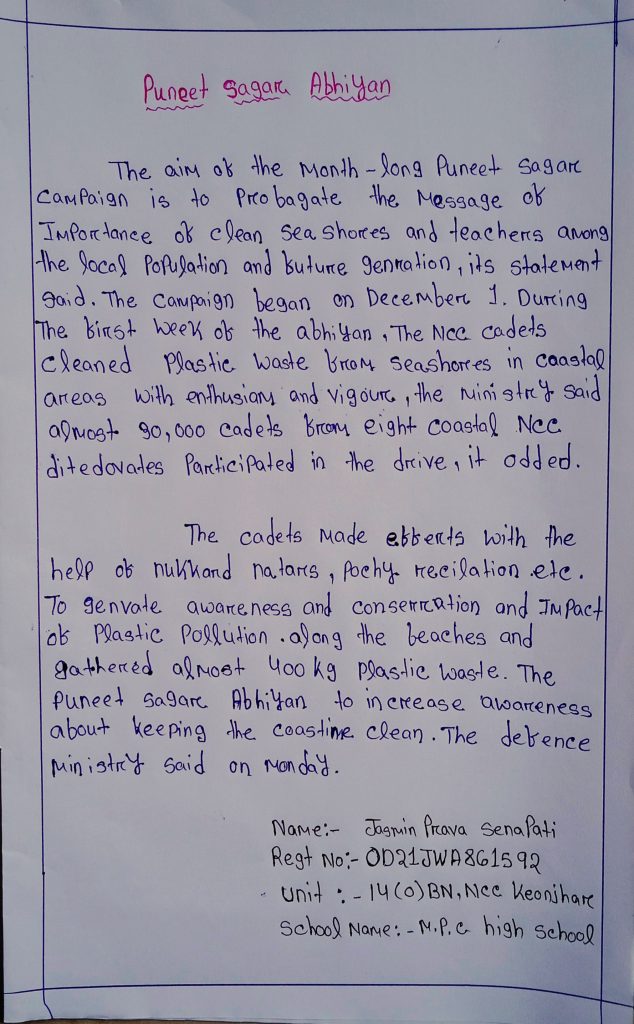 Puneet Sagar Abhiyan
The aim of the Month-long Puneet Sagar
Campaign is to Probagate the Message of
Importance of clean Sea shores and teachers among
the local Population and future genration, its statement
said. The Campaign began on December 1. During
The first week of the abhiyan, The Ncc cadets
Cleaned Plastic Waste from seashores in coastal
areas with enthusiam and vigour, the ministry said
almost 90,000 cadets from eight coastal Ncc
ditedovates Participated in the drive, it odded.
The cadets Made efferts with the
help of nukkand natars, Pochy recilation etc.
To genvate awareness and conserrcation and Impact
of Plastic Pollution. along the beaches and
gathered almost 400 kg plastic waste. The
Puneet Sagar Abhiyan to increase awareness
about keeping the coastine clean. The defence
Ministry Said on Monday.
Name:- Jasmin Prava Senapati
Regt No:- OD21JWA861592
Unit :- 14(O)BN, Ncc Keonjhar
School Name:- M.P.C high School